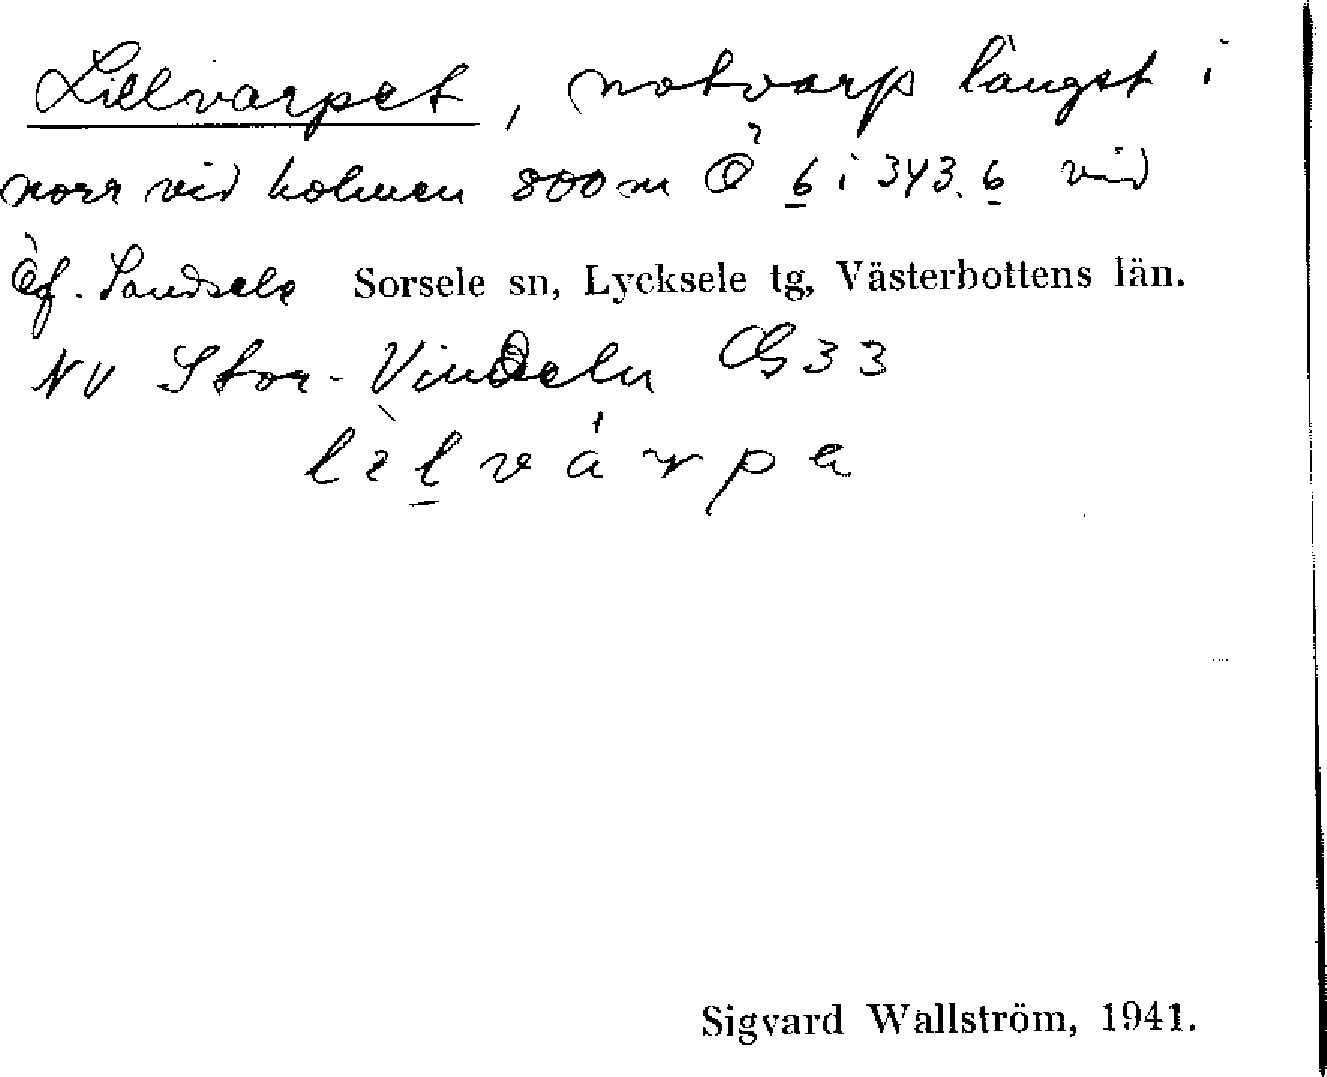 Lillvarpet, notvarp längst i
norr vid holmen 800 m Ö 6 i 343.6 vid
Öf. Sandsele Sorsele sn, Lycksele tg, Västerbottens län.
NV Stor-Vindeln 33
Sigvard Wallström, 1941.